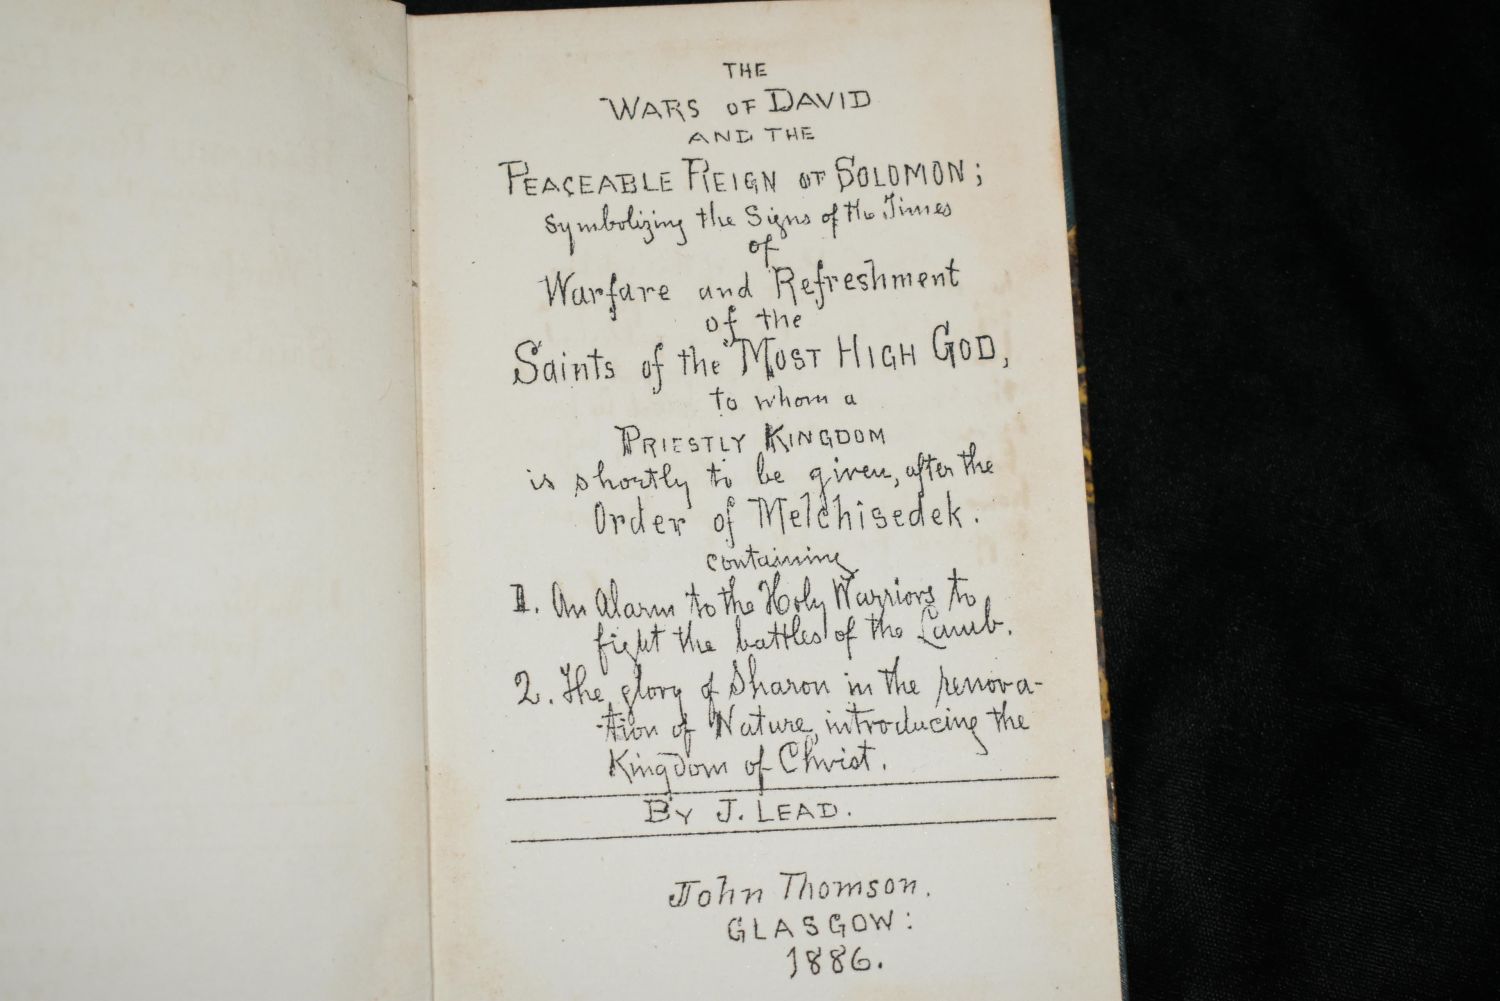 THE
WARS OF DAVID
AND THE
PEACEABLE REIGN OF SOLOMON;
Symbolizing the Signs of the Times
of
Warfare and Refreshment
of the
Saints of the MOST HIGH GOD,
to whom a
PRIESTLY KINGDOM
is shortly to be given, after the
Order of Melchisedek.
containing
1. An Alarm to the Holy Warriors to
fight the battles of the Lamb.
2. The glory of Sharon in the renova-
-tion of Nature, introducing the
Kingdom of Christ.
BY J. LEAD.
John Thomson.
GLASGOW:
1886.